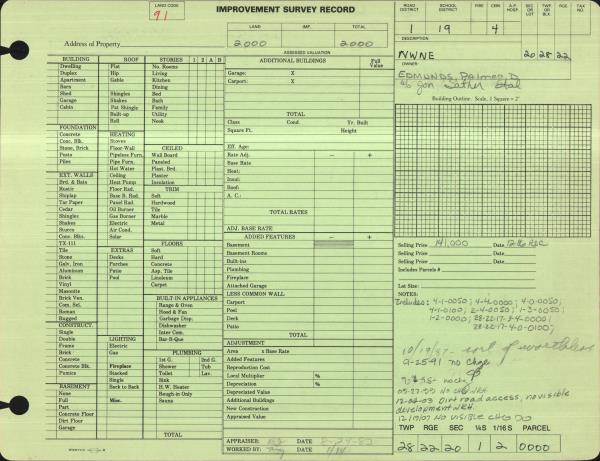 LAND CODE
91
IMPROVEMENT SURVEY RECORD
ROAD DISTRICT
SCHOOL DISTRICT
FIRE
CEM.
A.P. HOSP.
SEC OR LOT
TWP OR BLK
RGE
TAX NO.
1 19 4
LAND IMP. TOTAL
2000 2000
Address of Property
ASSESSED VALUATION
DESCRIPTION
NWNE 20 28-22
OWNER
Building Outline. Scale, 1 Square = 2'
BUILDING ROOF STORIES 1 2 A B
Dwelling Flat No. Rooms
Duplex Hip Living
Apartment Gable Kitchen
Barn Dining
Shed Shingles Bed
Garage Shakes Bath
Cabin Pat Shingle Family
Built-up Utility
Roll Nook
FOUNDATION
Concrete HEATING
Conc. Blk. Stoves CEILED
Stone, Brick Floor-Wall Wall Board
Posts Pipeless Furn. Paneled
Piles Pipe Furn. Plast. Brd.
Hot Water Ceiling Plaster
EXT. WALLS
Brd. & Bats Heat Pump Insulation
Rustic Floor Rad. TRIM
Shiplap Base B. Rad. Soft
Tar Paper Panel Rad. Hardwood
Cedar Oil Burner Tile
Shingles Gas Burner Marble
Shakes Electric Metal
Stucco Air Cond.
Conc. Blks. Solar
TX-111 FLOORS
Tile EXTRAS Soft
Stone Decks Hard
Galv. Iron Porches Concrete
Aluminum Patio Asp. Tile
Brick Pool Linoleum
Vinyl Carpet
Masonite
Brick Ven. BUILT-IN APPLIANCES
Com. Sel. Range & Oven
Roman Hood & Fan
Rugged Garbage Disp.
CONSTRUCT. Dishwasher
Single Inter Com.
Double LIGHTING Bar-B-Que
Frame Electric
Brick Gas PLUMBING
Concrete 1st G. 2nd G.
Concrete Fireplace Shower Tub
Pumice Stacked Toilet Lav.
Single Sink
BASEMENT Back to Back H.W. Heater
None Rough-in Only
Full Misc. Sauna
Part
Concrete Floor
Dirt Floor
Garage TOTAL
ADDITIONAL BUILDINGS Full Value
Garage: X
Carport: X
TOTAL
Class Cond. Yr. Built
Square Ft. Height
Eff. Age:
Rate Adj. - +
Base Rate
Heat:
Insul:
Roof:
A. C.:
TOTAL RATES
ADJ. BASE RATE
ADDED FEATURES - +
Basement
Basement Rooms
Built-ins
Plumbing
Fireplace
Attached Garage
LESS COMMON WALL
Carport
Pool
Deck
Patio
TOTAL
ADJUSTMENT
Area x Base Rate
Added Features
Reproduction Cost
Local Multiplier %
Depreciation %
Depreciated Value
Additional Buildings
New Construction
Appraised Value
APPRAISER: DATE 8-24-82
WORKED BY: DATE
Selling Price 141,000 Date
Selling Price Date
Includes Parcels #
Lot Size:
NOTES:
Includes: 4-1-0050; 4-4-0000; 4-0-0050;
4-1-0100; 2-4-0050; 1-3-0050;
1-2-0000; 28-22-17-3-4-0000;
28-22-17-4-0-0100;
10/19/87 worthless
9-25-91 no chge
12-02-03 Dirt road access, no visible
development NRH.
12/19/07 NO VISIBLE CHG
TWP RGE SEC ¼S 1/16S PARCEL
28 22 20 1 2 0000